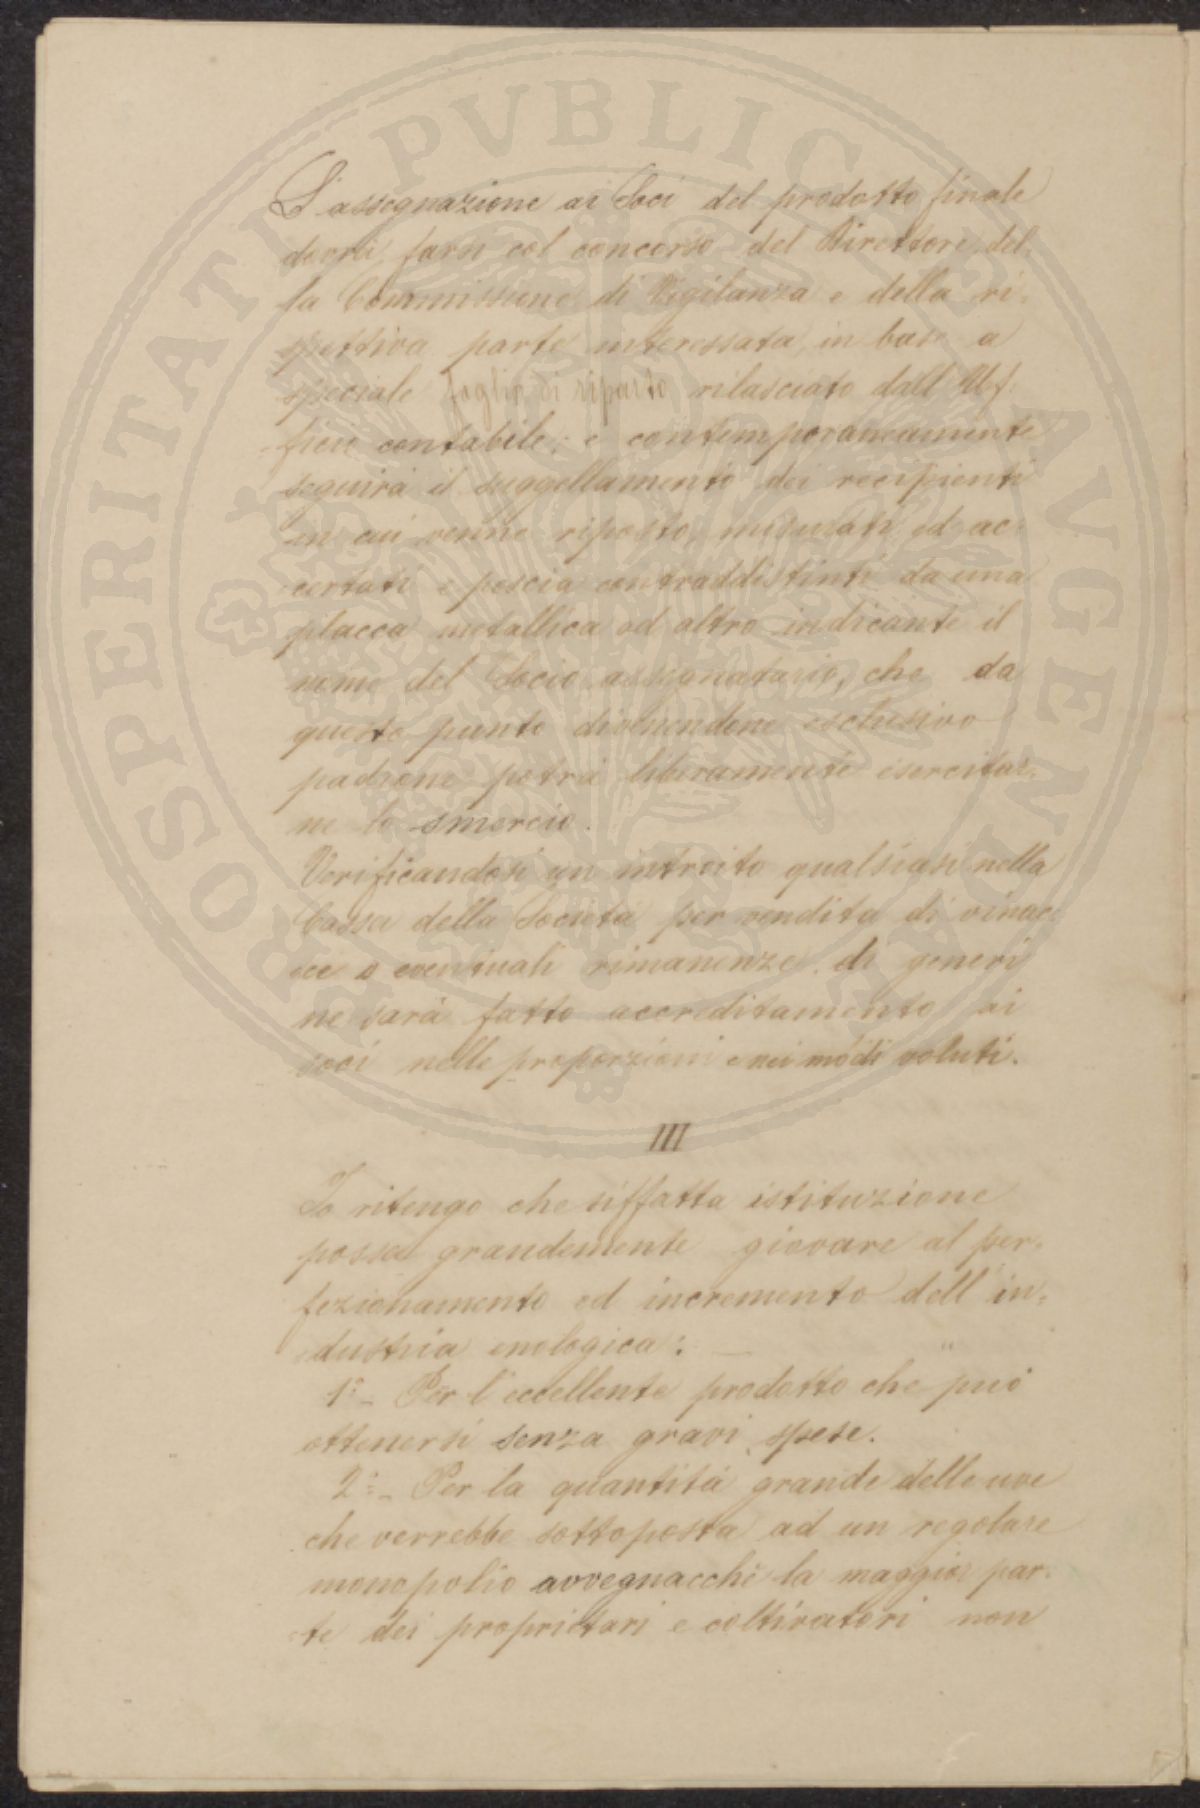 L'assegnazione ai Soci del prodotto finale
dovrà farsi col concorso del Direttore, del-
la Commissione di Vigilanza e della ri-
spettiva parte interessata, in base a
speciale foglio di riparto rilasciato dall'Uf-
ficio contabile; e contemporaneamente
seguirà il suggellamento dei recipienti
in cui venne riposto, misurati ed ac-
certati e poscia contraddistinti da una
placca metallica od altro indicante il
nome del Socio assegnatario, che da
questo punto divenendone esclusivo
padrone potrà liberamente esercitar-
ne lo smercio.
Verificandosi un introito qualsiasi nella
Cassa della Società per vendita di vinac-
cce o eventuali rimanenze di generi
ne sarà fatto accreditamento ai
soci nelle proporzioni e nei módi voluti.
III
Io ritengo che siffatta istituzione
possa grandemente giovare al per-
fezionamento ed incremento dell'in-
dustria enologica: —
1º- Per l'eccellente prodotto che può
ottenersi senza gravi spese.
2º- Per la quantità grande delle uve
che verrebbe sottoposta ad un regolare
monopolio avvegnacchè la maggior par-
te dei proprietari e coltivatori non
PROSPERITATI PVBLICAE AVGENDAE